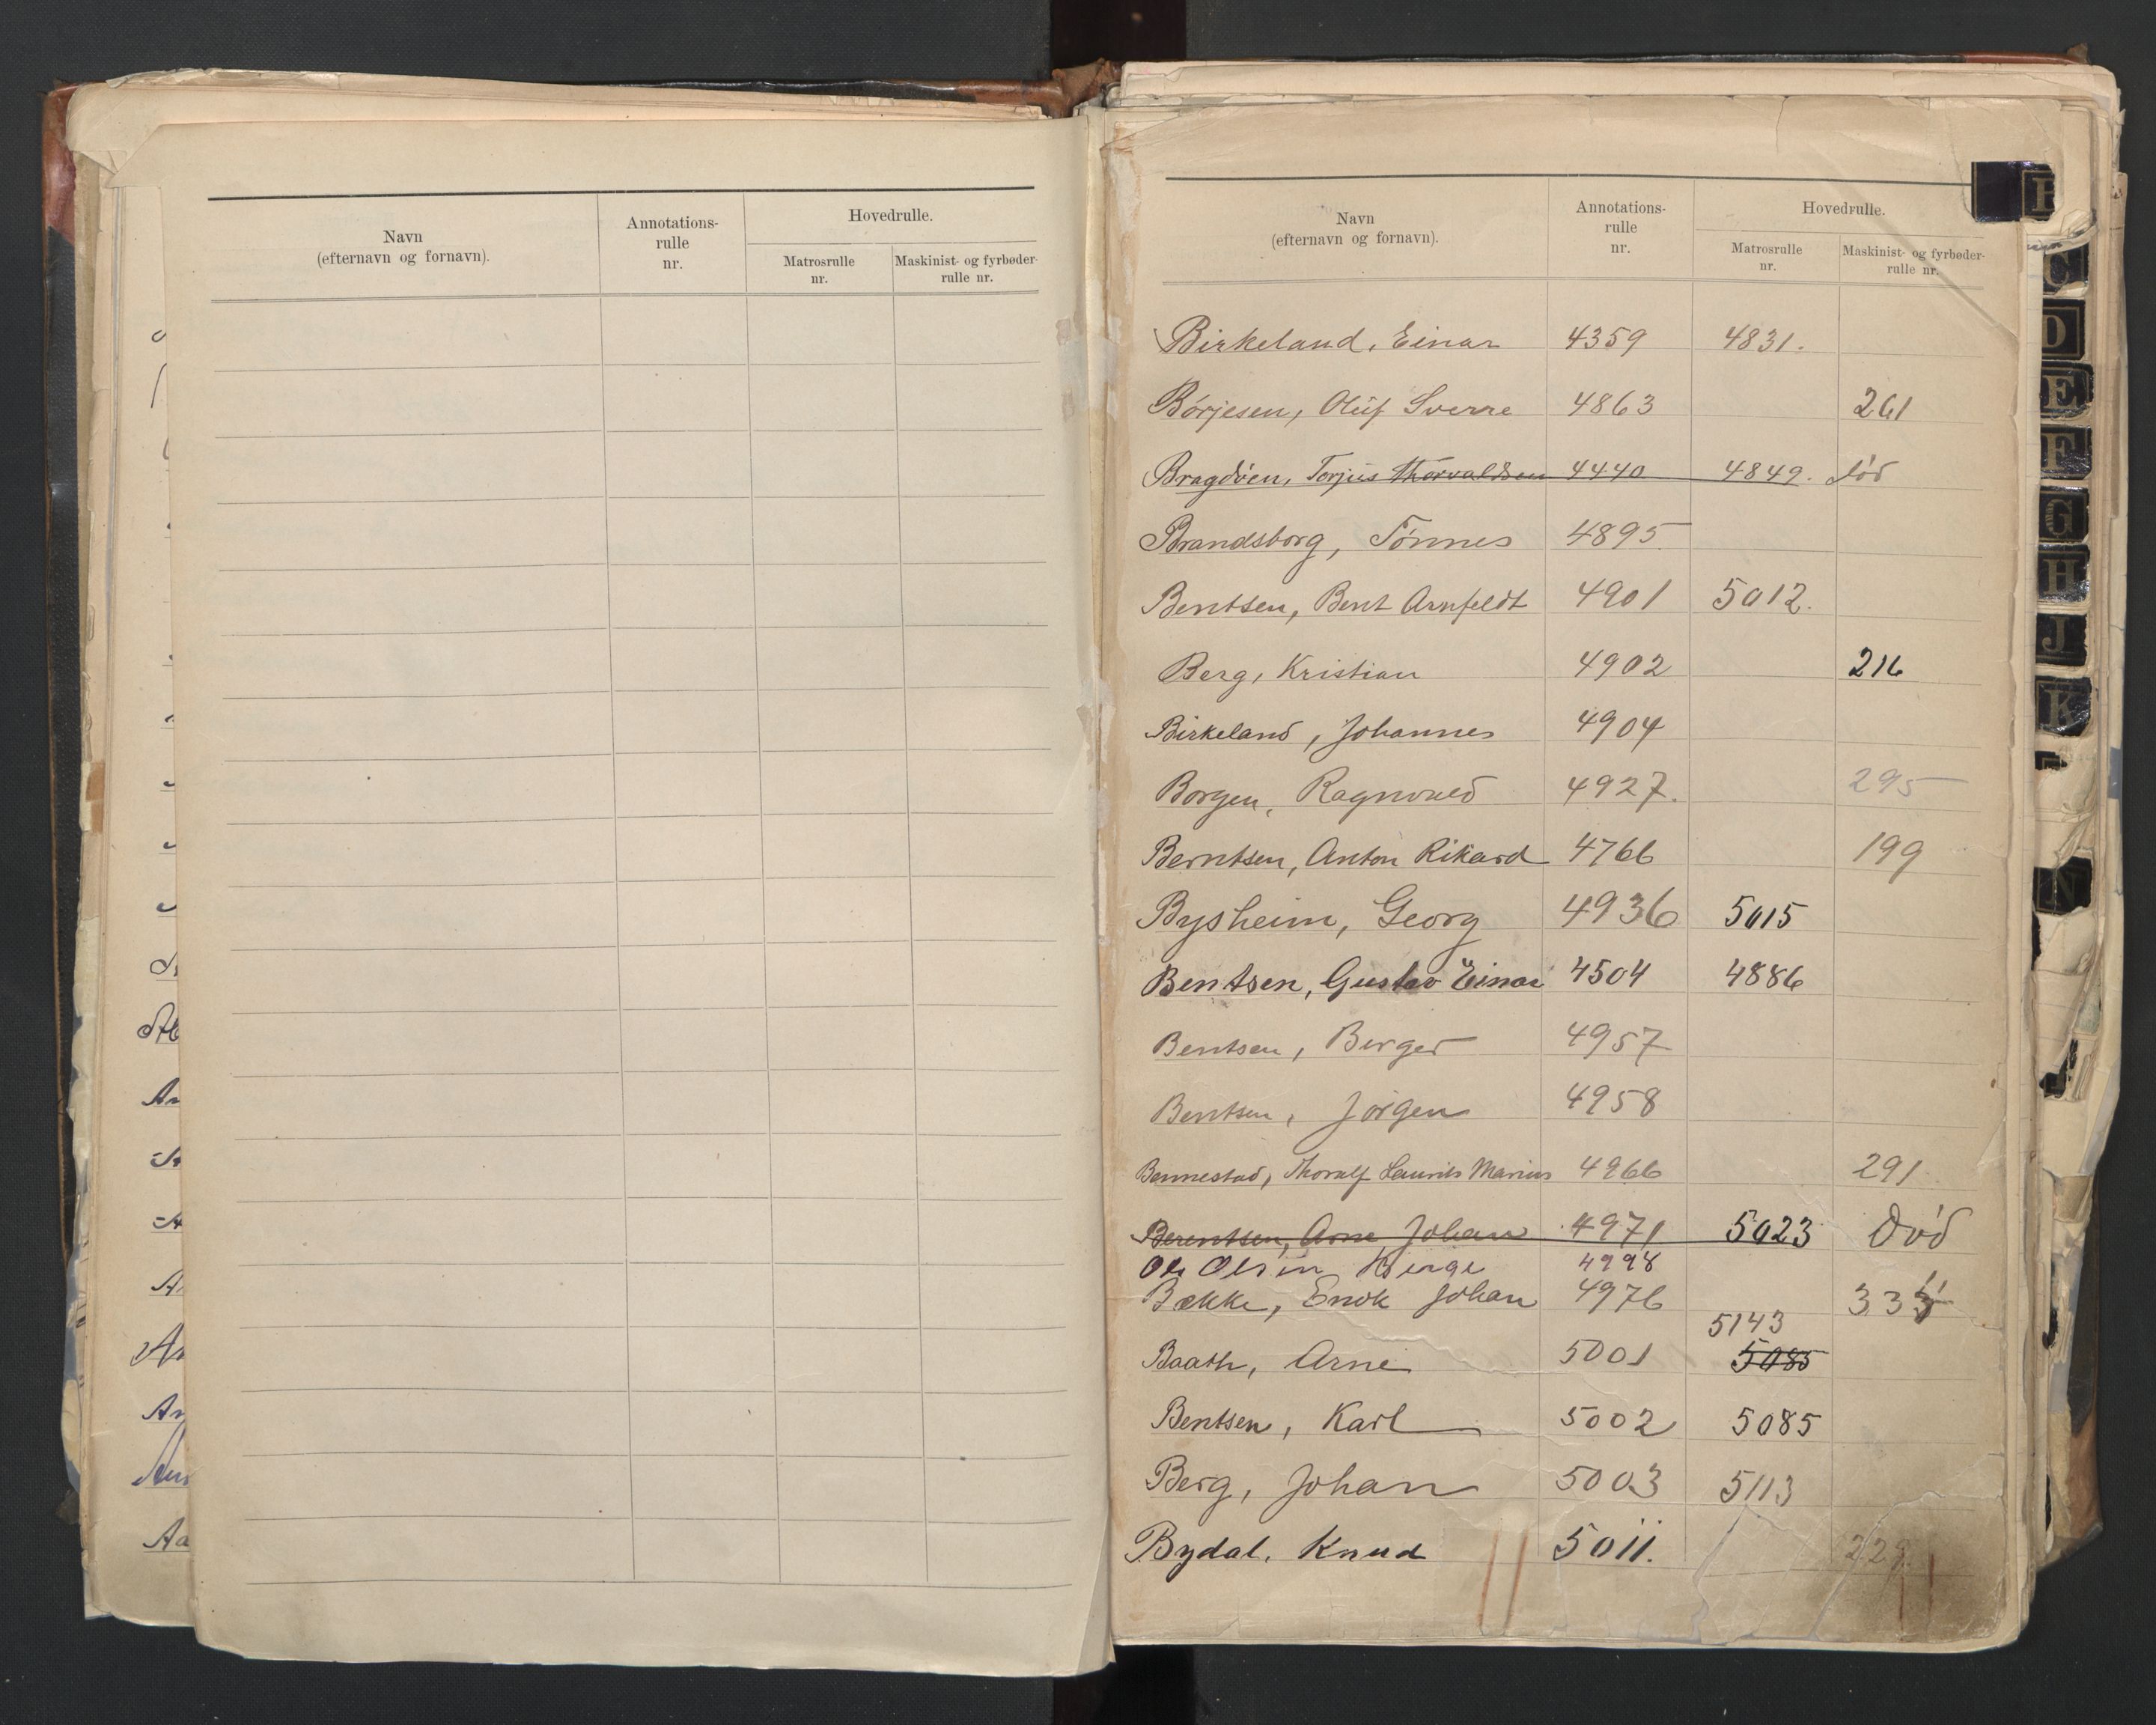 Navn
(efternavn og fornavn).
Annotations-
rulle
nr.
Hovedrulle.
Matrosrulle
nr.
Maskinist- og fyrbøder-
rulle nr.
Navn
(efternavn og fornavn).
Annotations-
rulle
nr.
Hovedrulle.
Matrosrulle
nr.
Maskinist- og fyrbøder-
rulle nr.
Birkeland, Einar 4359 4831.
Börjesen, Oluf Sverre 4863 261
Bragdöen, Torjus Thorvaldsen 4440 4849. död
Brandsborg, Tönnes 4895
Bentsen, Bent Arnfeldt 4901 5012.
Berg, Kristian 4902 216
Birkeland, Johannes 4904
Borgen, Ragnvald 4927. 295
Berntsen, Anton Rikard 4766 199
Bysheim, Georg 4936 5015
Bentsen, Gustav Einar 4504 4886
Bentsen, Birger 4957
Bentsen, Jörgen 4958
Bennestad, Thoralf Laurits Marius 4966 291
Berentsen, Arne Johan 4971 5023 Död
Olsen Berge 4998
Bække, Enok Johan 4976
5143
Baath, Arne 5001 5085
Bentsen, Karl 5002 5085
Berg, Johan 5003 5113
Bydal, Knud 5011. 229.
C
D
E
F
G
H
J
K
N